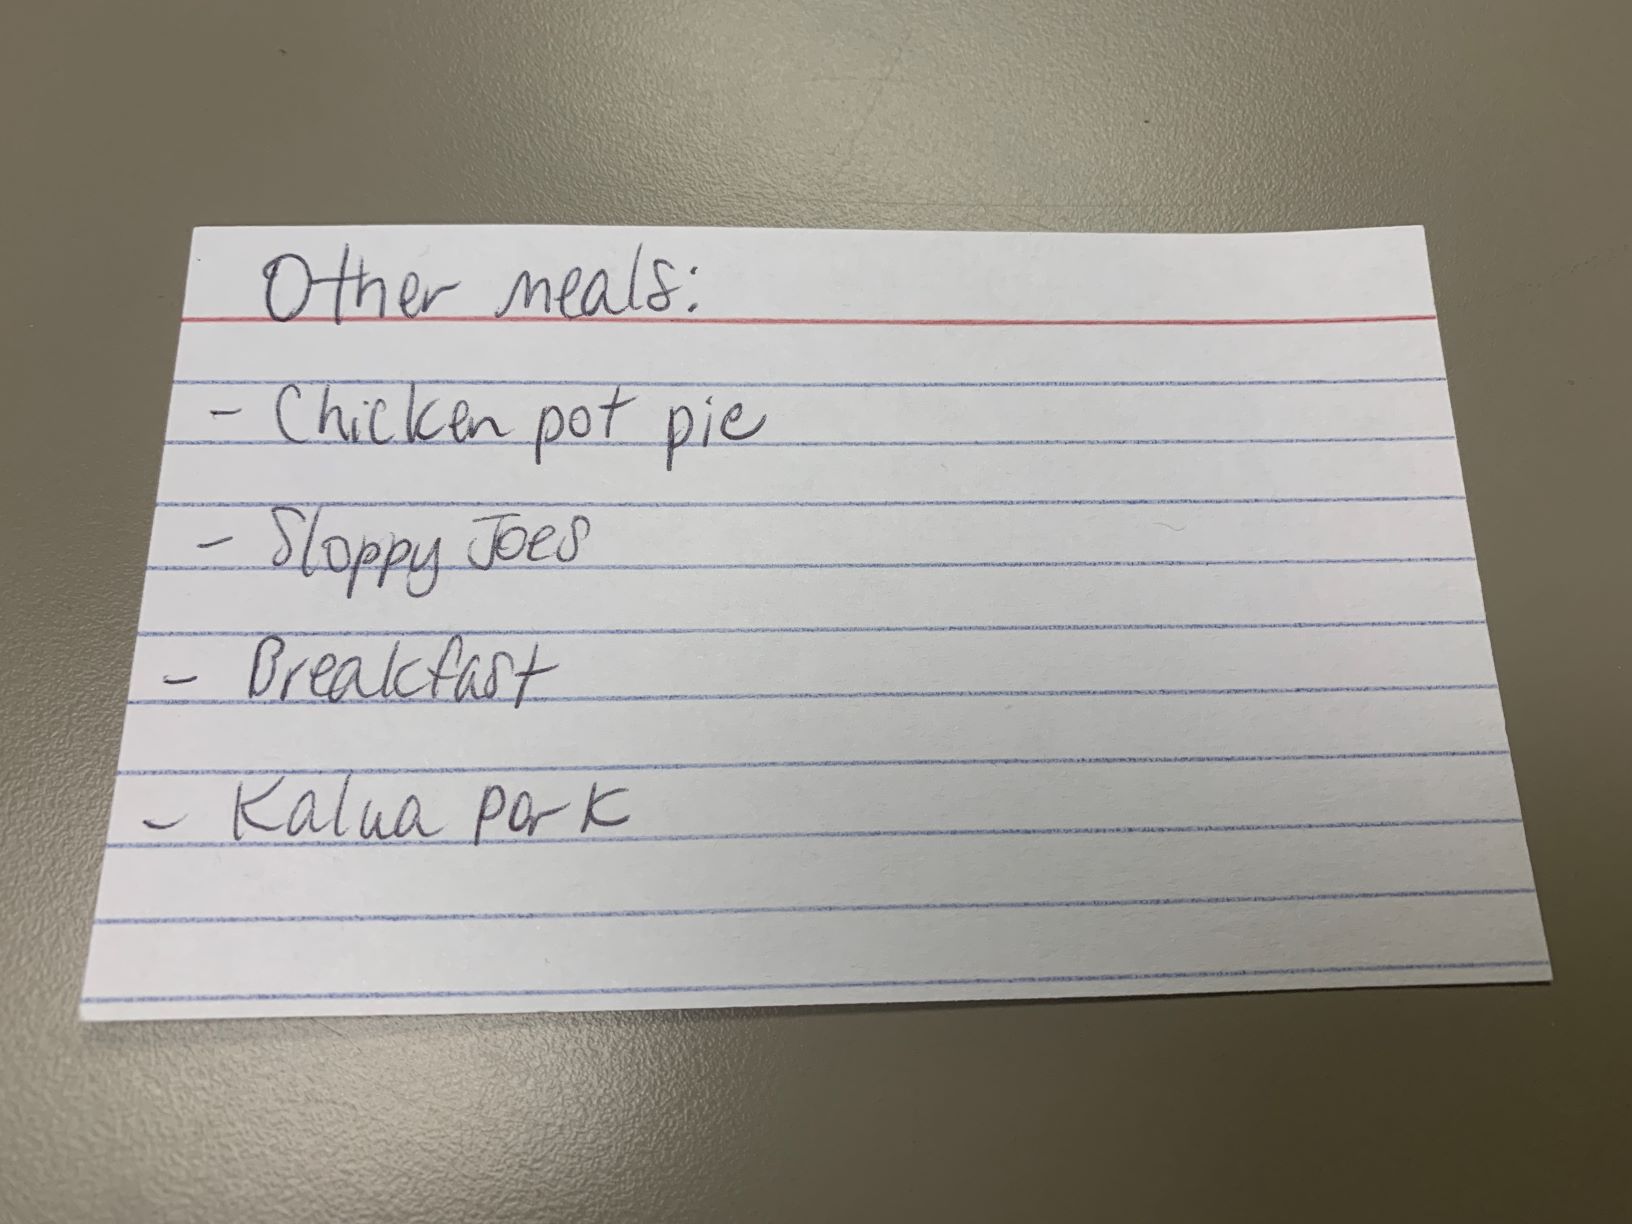 Other meals:
- Chicken pot pie
- Sloppy Joes
- Breakfast
- Kalua pork